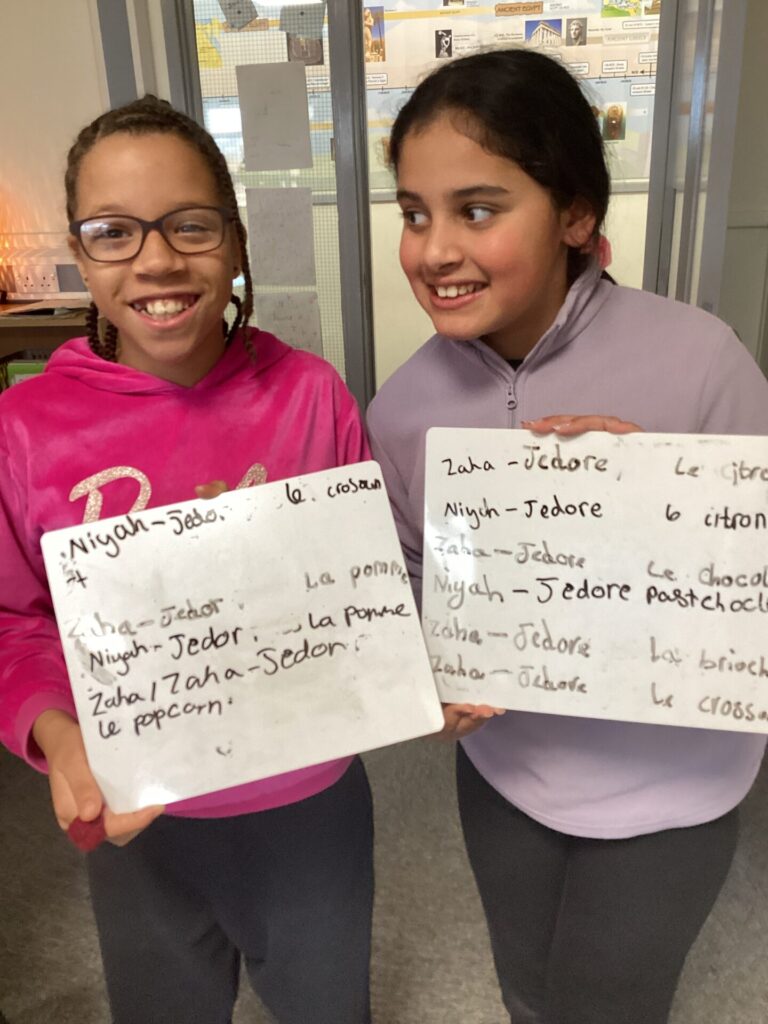 ANCIENT EGYPT
ANCIENT GREECE
Niyah-Jedo. le crosoun
La pomme
Zaha-Jedor.
Niyah-Jedor. La Pomme
Zaha/Zaha-Jedor.
le popcorn.
Zaha-Jedore Le citro
Niyah-Jedore citron
Zaha-Jedore Le chocol
Niyah-Jedore pastchocl
Zaha-Jedore La brioch
Zaha-Jedore Le crossa